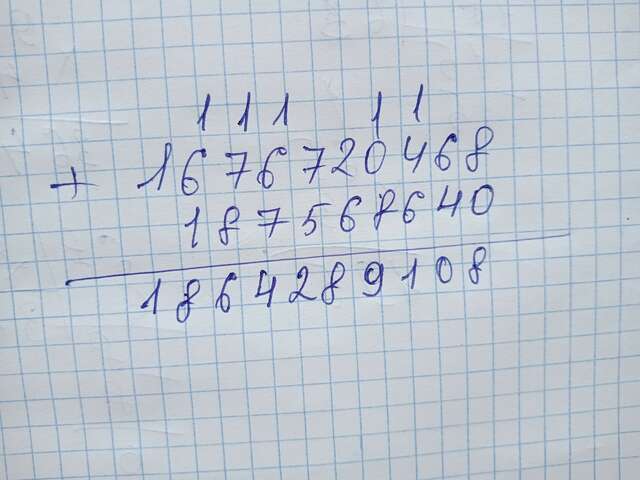 1 1 1 1 1
+ 1676720468
187568640
1864289108